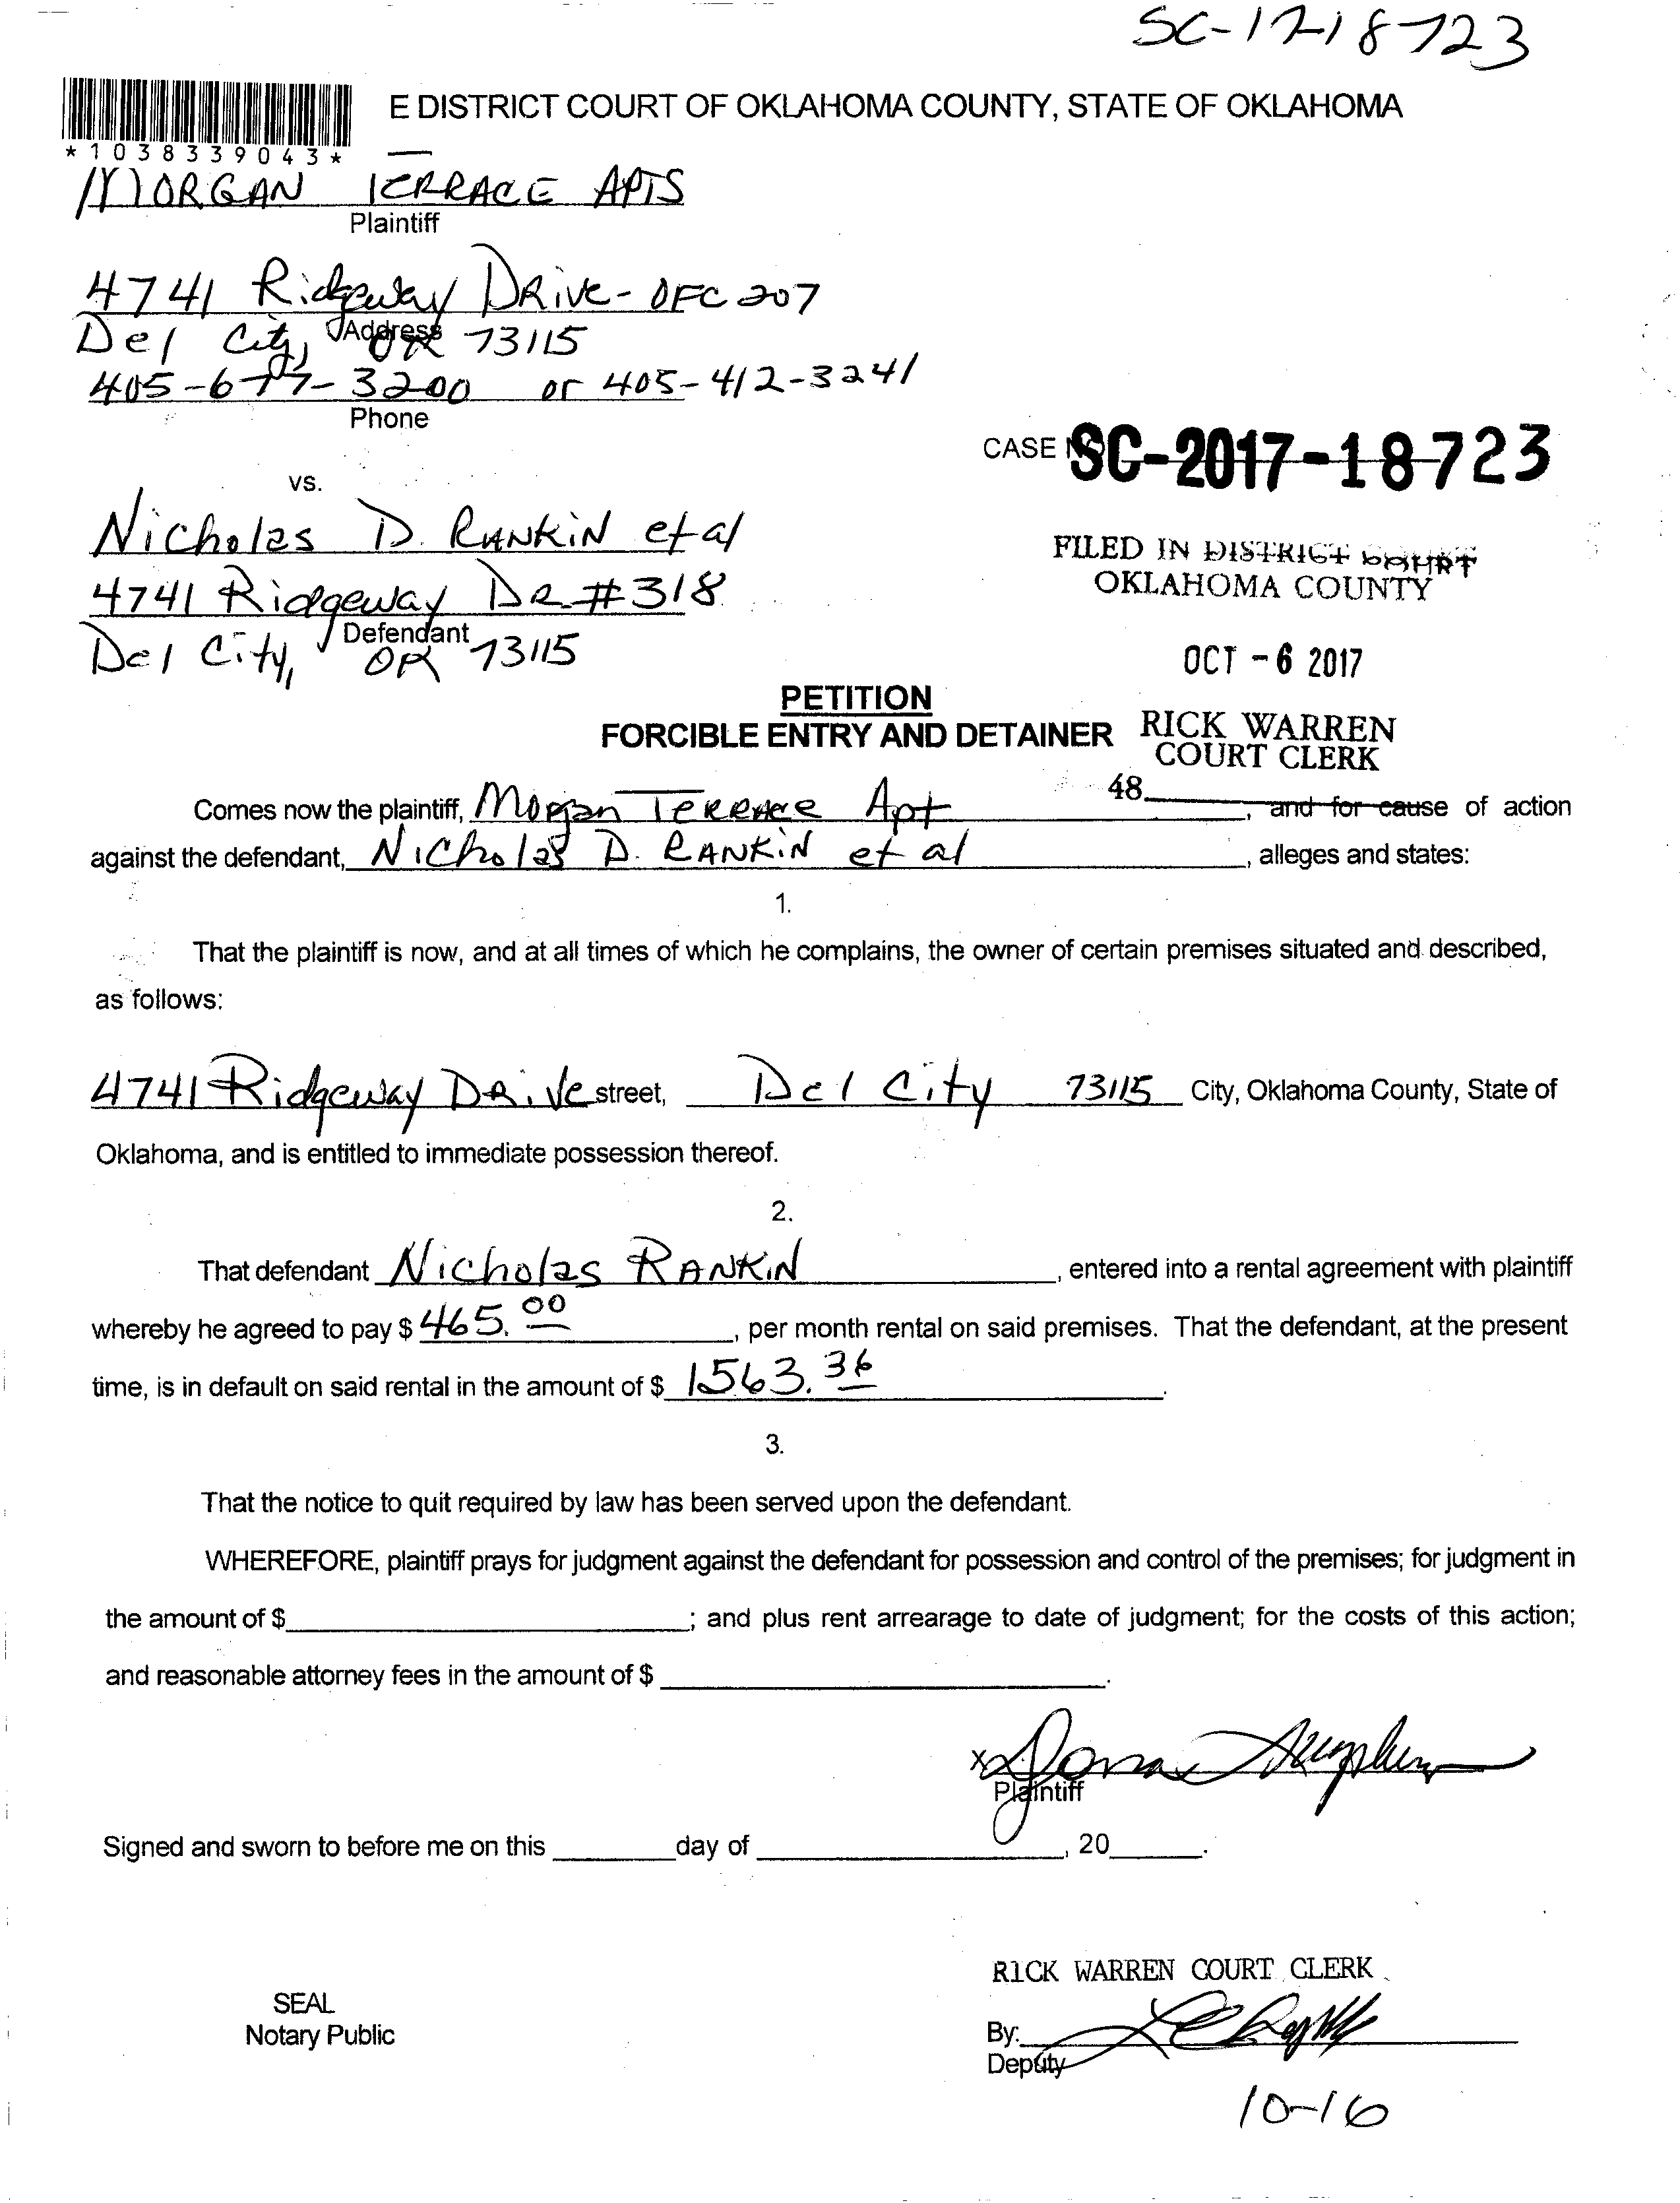 SC-17-18723
E DISTRICT COURT OF OKLAHOMA COUNTY, STATE OF OKLAHOMA
*1038339043*
MORGAN TERRACE APTS
Plaintiff
4741 Ridgeway DRive - OFC 207
Address
Del City, OK 73115
405-677-3200 or 405-412-3241
Phone
CASE NO SC-2017-18723
vs.
Nicholas D. RANKIN et al
FILED IN DISTRICT COURT
OKLAHOMA COUNTY
4741 Ridgeway DR #318
Defendant
Del City, OK 73115
OCT - 6 2017
PETITION
FORCIBLE ENTRY AND DETAINER
RICK WARREN
COURT CLERK
48
Comes now the plaintiff, Morgan TERRACE Apt, and for cause of action
against the defendant, Nicholas D. RANKIN et al, alleges and states:
1.
That the plaintiff is now, and at all times of which he complains, the owner of certain premises situated and described,
as follows:
4741 Ridgeway DRive street, Del City 73115 City, Oklahoma County, State of
Oklahoma, and is entitled to immediate possession thereof.
2.
That defendant Nicholas RANKIN, entered into a rental agreement with plaintiff
whereby he agreed to pay $ 465.00, per month rental on said premises. That the defendant, at the present
time, is in default on said rental in the amount of $ 1563.36.
3.
That the notice to quit required by law has been served upon the defendant.
WHEREFORE, plaintiff prays for judgment against the defendant for possession and control of the premises; for judgment in
the amount of $ ; and plus rent arrearage to date of judgment; for the costs of this action;
and reasonable attorney fees in the amount of $ .
X
Plaintiff
Signed and sworn to before me on this day of , 20 .
RICK WARREN COURT CLERK
SEAL
Notary Public
By:
Deputy
10-16